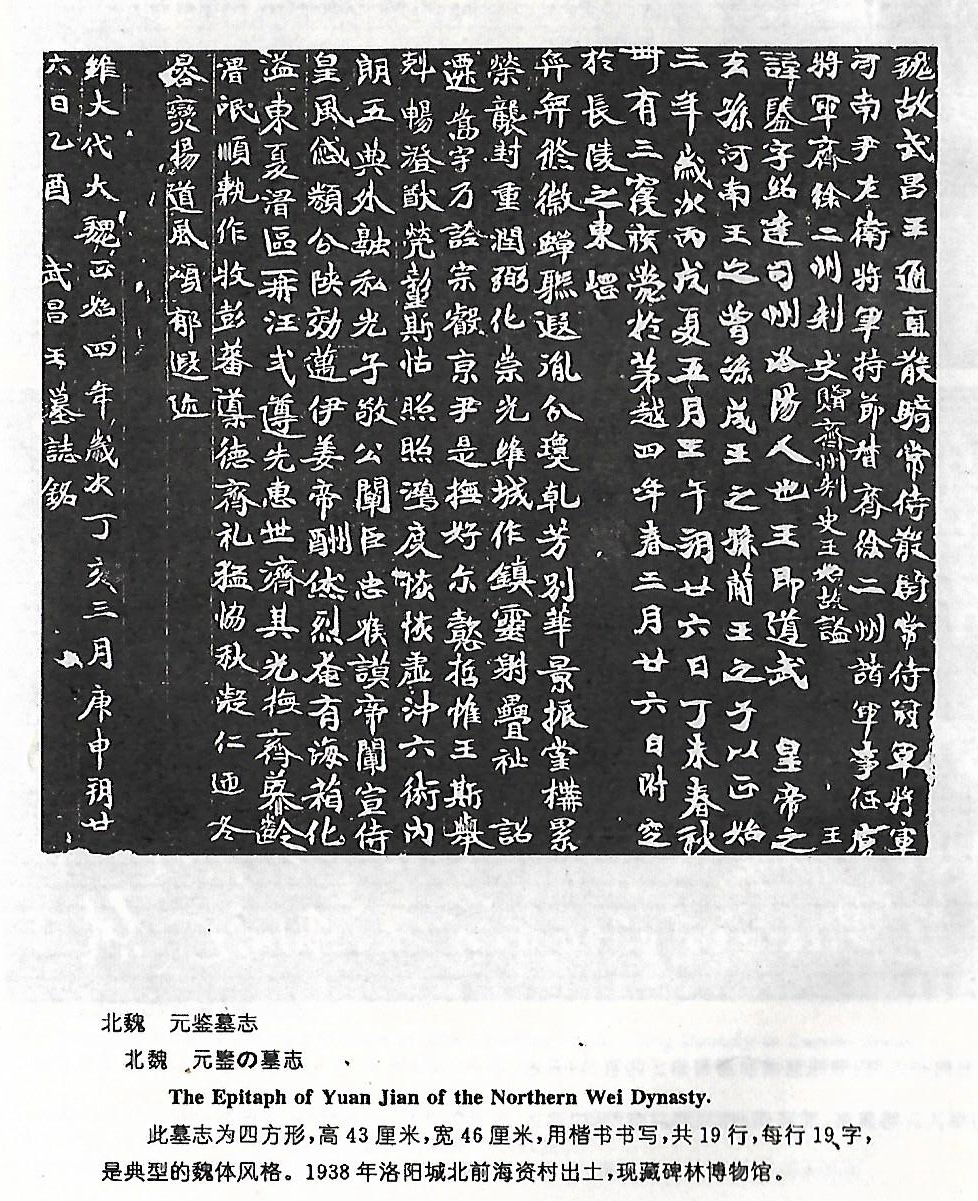 魏故武昌王通直散騎常侍散騎常侍冠軍將軍
河南尹左衛將軍持節督齊徐二州諸軍事征虜
將軍齊徐二州刺史贈齊州刺史王如故謚 王
諱鑒字紹達司州洛陽人也王即道武 皇帝之
玄孫河南王之曾孫成王之孫簡王之子以正始
三年歲次丙戌夏五月壬午朔廿六日丁未春秋
卌有三寢疾薨於第越四年春三月廿六日附空
於長陵之東崿
弈弈緜徽蟬聯遐胤分瓊乾芳別華景振堂構累
榮襲封重潤弼化崇光維城作鎮靈射疊祉 詔
遷 乃詮宗睿京尹是撫好尓懿哲惟王斯舉
剋暢澄猷 斯怙照照鴻度恢恢虛沖六術內
朗五典外融私光子敬公闡臣忠 謨帝闈宣侍
皇風 頵分陝効邁伊姜帝酬 烈奄有海葙化
溢東夏湑區再汪式遵先惠世濟其光撫齊慕
湑氓順軌作牧彭蕃導德齊礼猛協秋凝仁逈冬
晷爕揚道風 郁遐迩
維大代大魏正始四年歲次丁亥三月庚申朔廿
六日乙酉 武昌王墓誌銘
北魏 元鉴墓志
北魏 元鑒の墓志
The Epitaph of Yuan Jian of the Northern Wei Dynasty.
此墓志为四方形,高43厘米,宽46厘米,用楷书书写,共19行,每行19字,
是典型的魏体风格。1938年洛阳城北前海资村出土,现藏碑林博物馆。